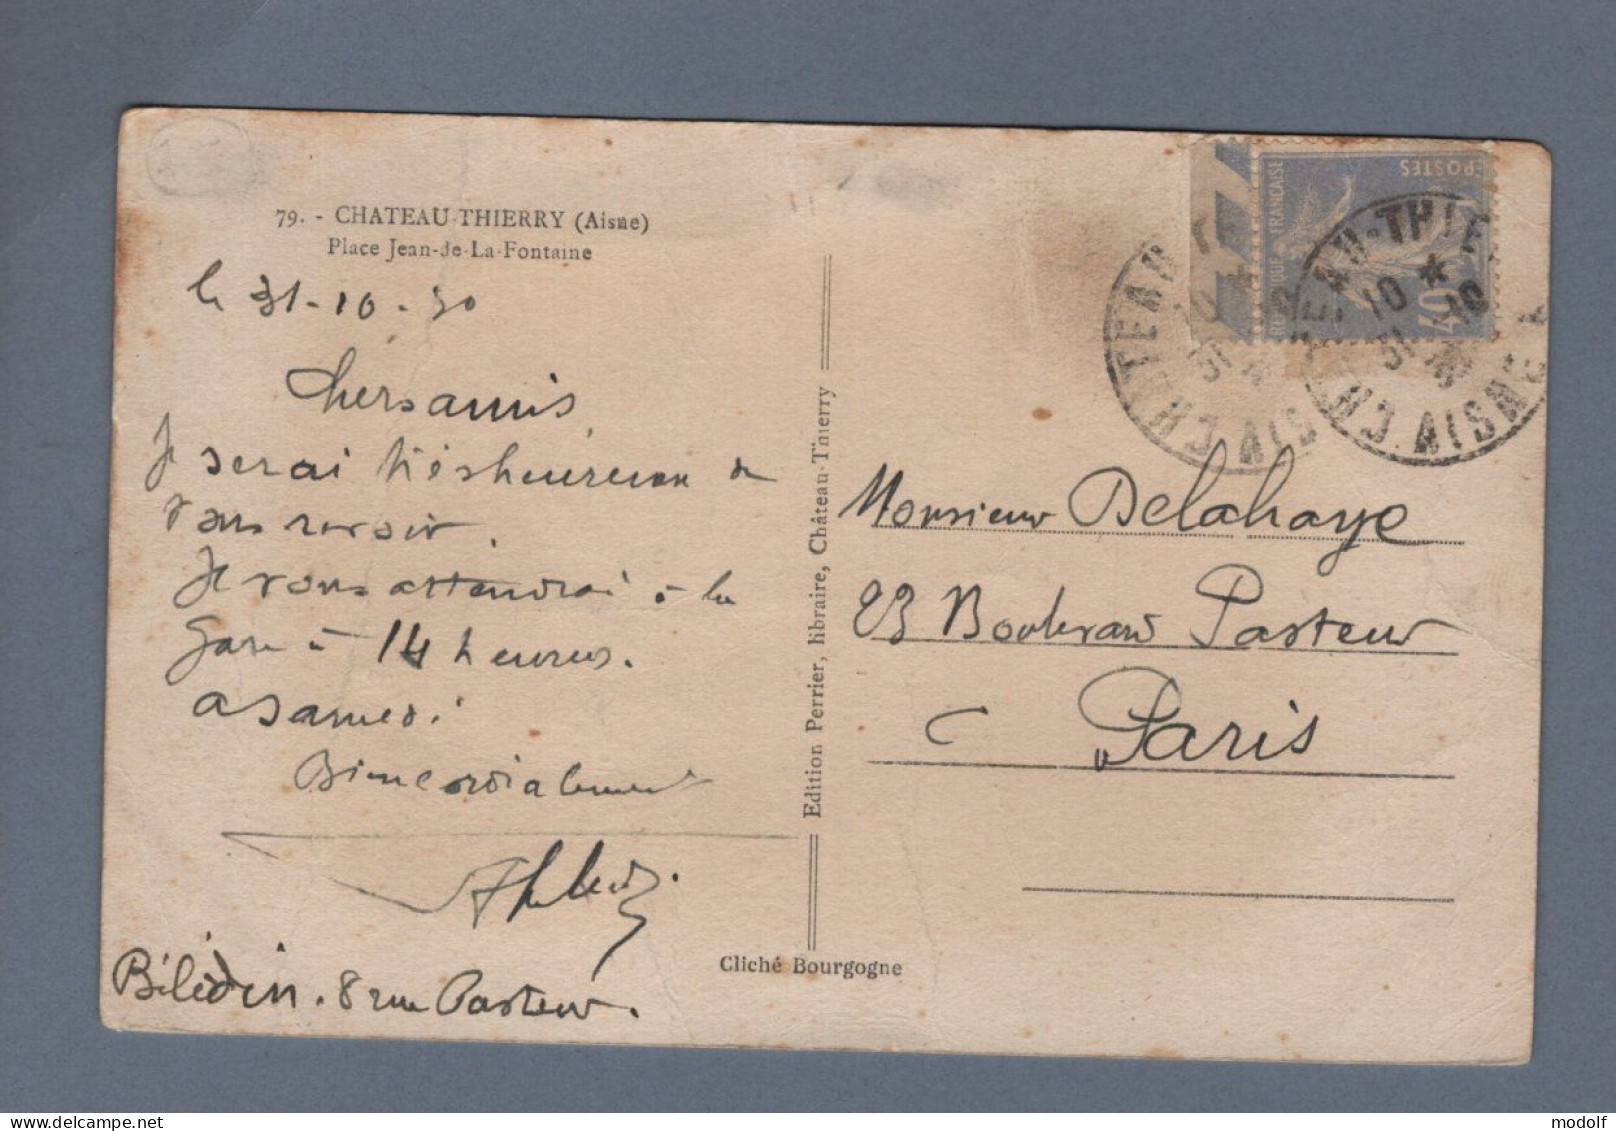 79. - CHATEAU-THIERRY (Aisne)
Place Jean-de-La-Fontaine
le 31-10-30
Chers amis
Je serai très heureux de
vous revoir.
Je vous attendrai à la
gare à 14 heures.
a samedi.
Bien cordialement
Bilédin. 8 rue Pasteur.
Edition Perrier, libraire, Château-Thierry
Cliché Bourgogne
POSTES
REPUBLIQUE FRANÇAISE
40c
CHATEAU-THIERRY
10 *
31 -10
30
AISNE
Monsieur Delahaye
23 Boulevard Pasteur
Paris
delcampe.net
modolf